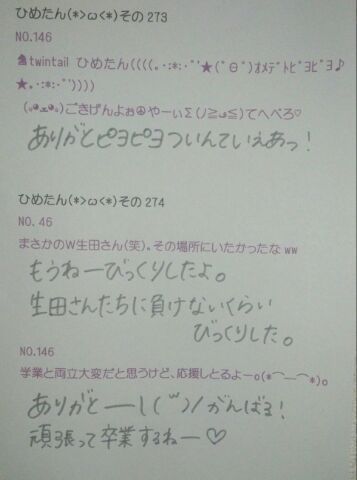 ひめたん(*>ω<*)その273
NO.146
twintail ひめたん((((｡･:*:･ﾟ'★(ﾟΘﾟ)ｵﾒﾃﾞﾄﾋﾟﾖﾋﾟﾖ♪
★｡･:*:･ﾟ'))))
ごきげんよぉ☮やーぃΣ(ﾉ≧ڡ≦)てへぺろ♡
ありがとピヨピヨついんていえあっ!
ひめたん(*>ω<*)その274
NO.46
まさかのW生田さん(笑)。その場所にいたかったなww
もうねーびっくりしたよ。
生田さんたちに負けないくらい
びっくりした。
NO.146
学業と両立大変だと思うけど、応援しとるよーo(*⌒―⌒*)o
ありがとーーし(‘‘‘)/がんばる!
頑張って卒業するねー♡